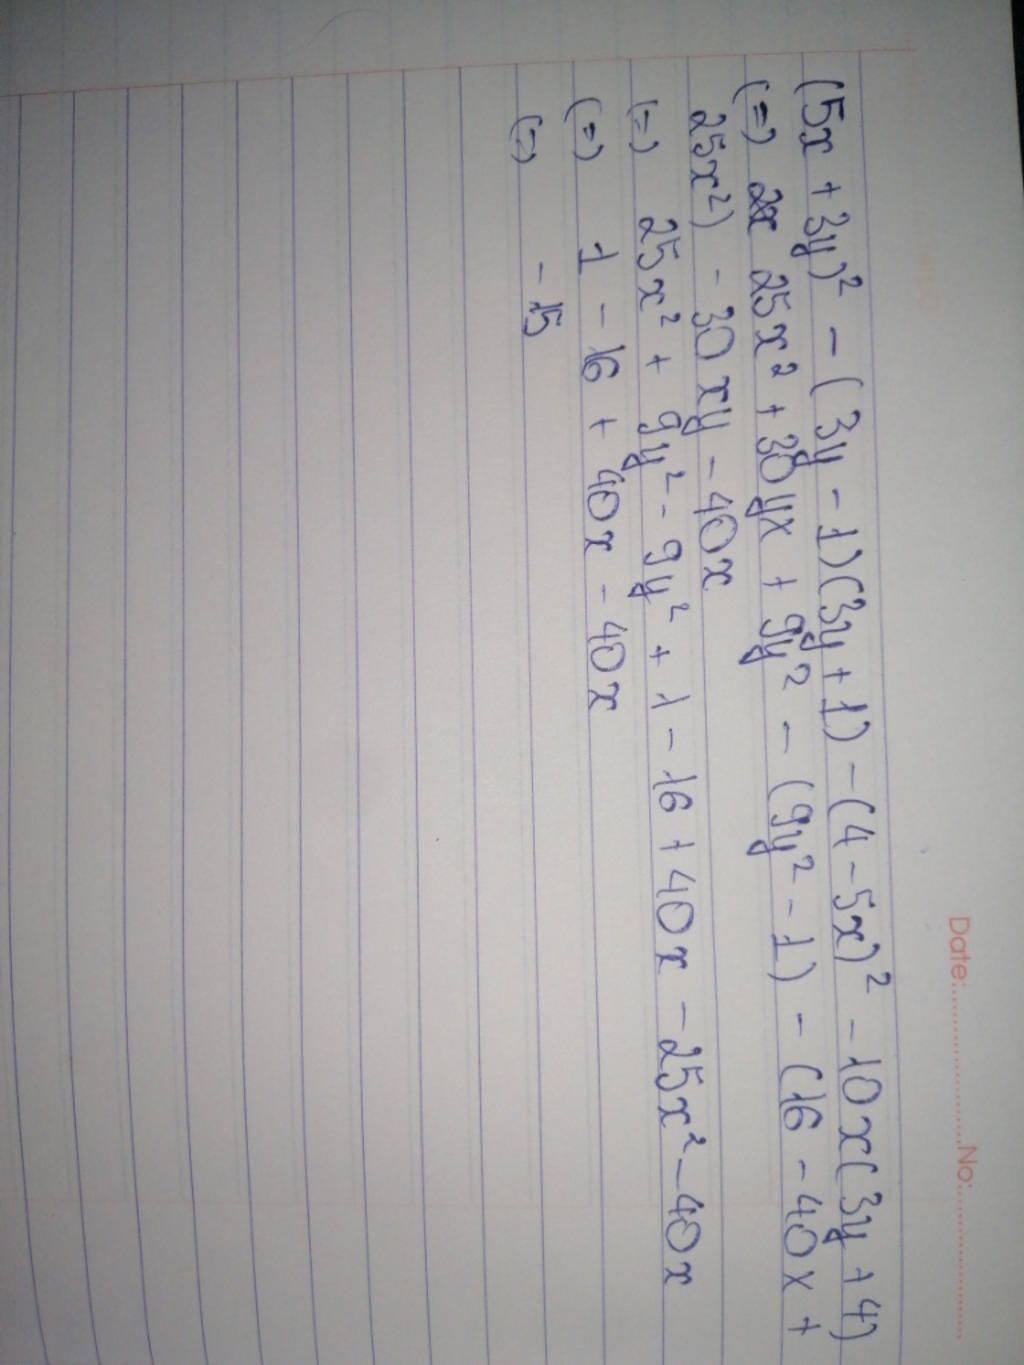 Date:....................No:....................
(5x + 3y)² - (3y - 1)(3y + 1) - (4 - 5x)² - 10x(3y + 4)
(=) 25x² + 30yx + 9y² - (9y² - 1) - (16 - 40x +
25x²) - 30xy - 40x
(=) 25x² + 9y² - 9y² + 1 - 16 + 40x - 25x² - 40x
(=) 1 - 16 + 40x - 40x
(=) - 15